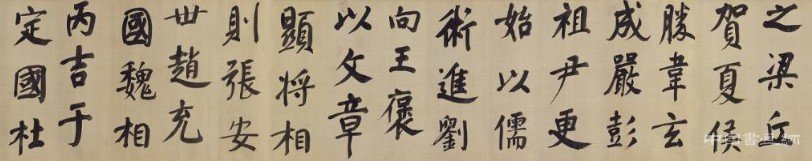 之梁丘
賀夏侯
勝韋玄
成嚴彭
祖尹更
始以儒
術進劉
向王褒
以文章
顯將相
則張安
世趙充
國魏相
丙吉于
定國杜